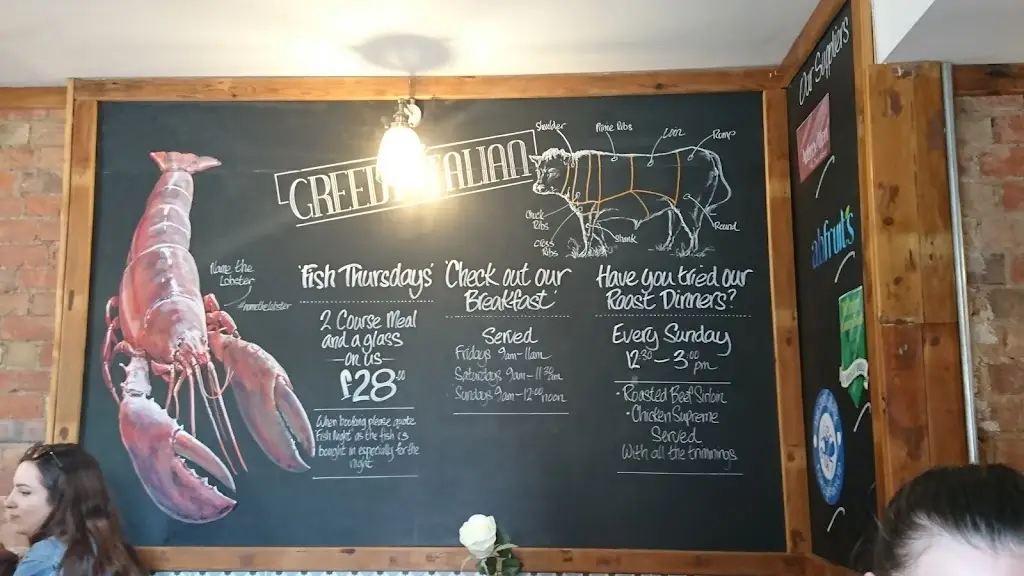 GREEDY ITALIAN
Shoulder
Prime Ribs
Loin
Rump
Chuck
Ribs
Cross
Ribs
Shank
Round
Name the
Lobster
#namethelobster
'Fish Thursdays'
2 Course Meal
and a glass
on us
£28.00
When booking please quote
Fish Night as the fish is
bought in especially for the
night
'Check out our
Breakfast'
Served
Fridays 9am-11am
Saturdays 9am-11:30am
Sundays 9am-12:00noon
Have you tried our
Roast Dinners?
Every Sunday
12:30-3:00pm
• Roasted Beef Sirloin
• Chicken Supreme
Served
With all the trimmings
Our Suppliers